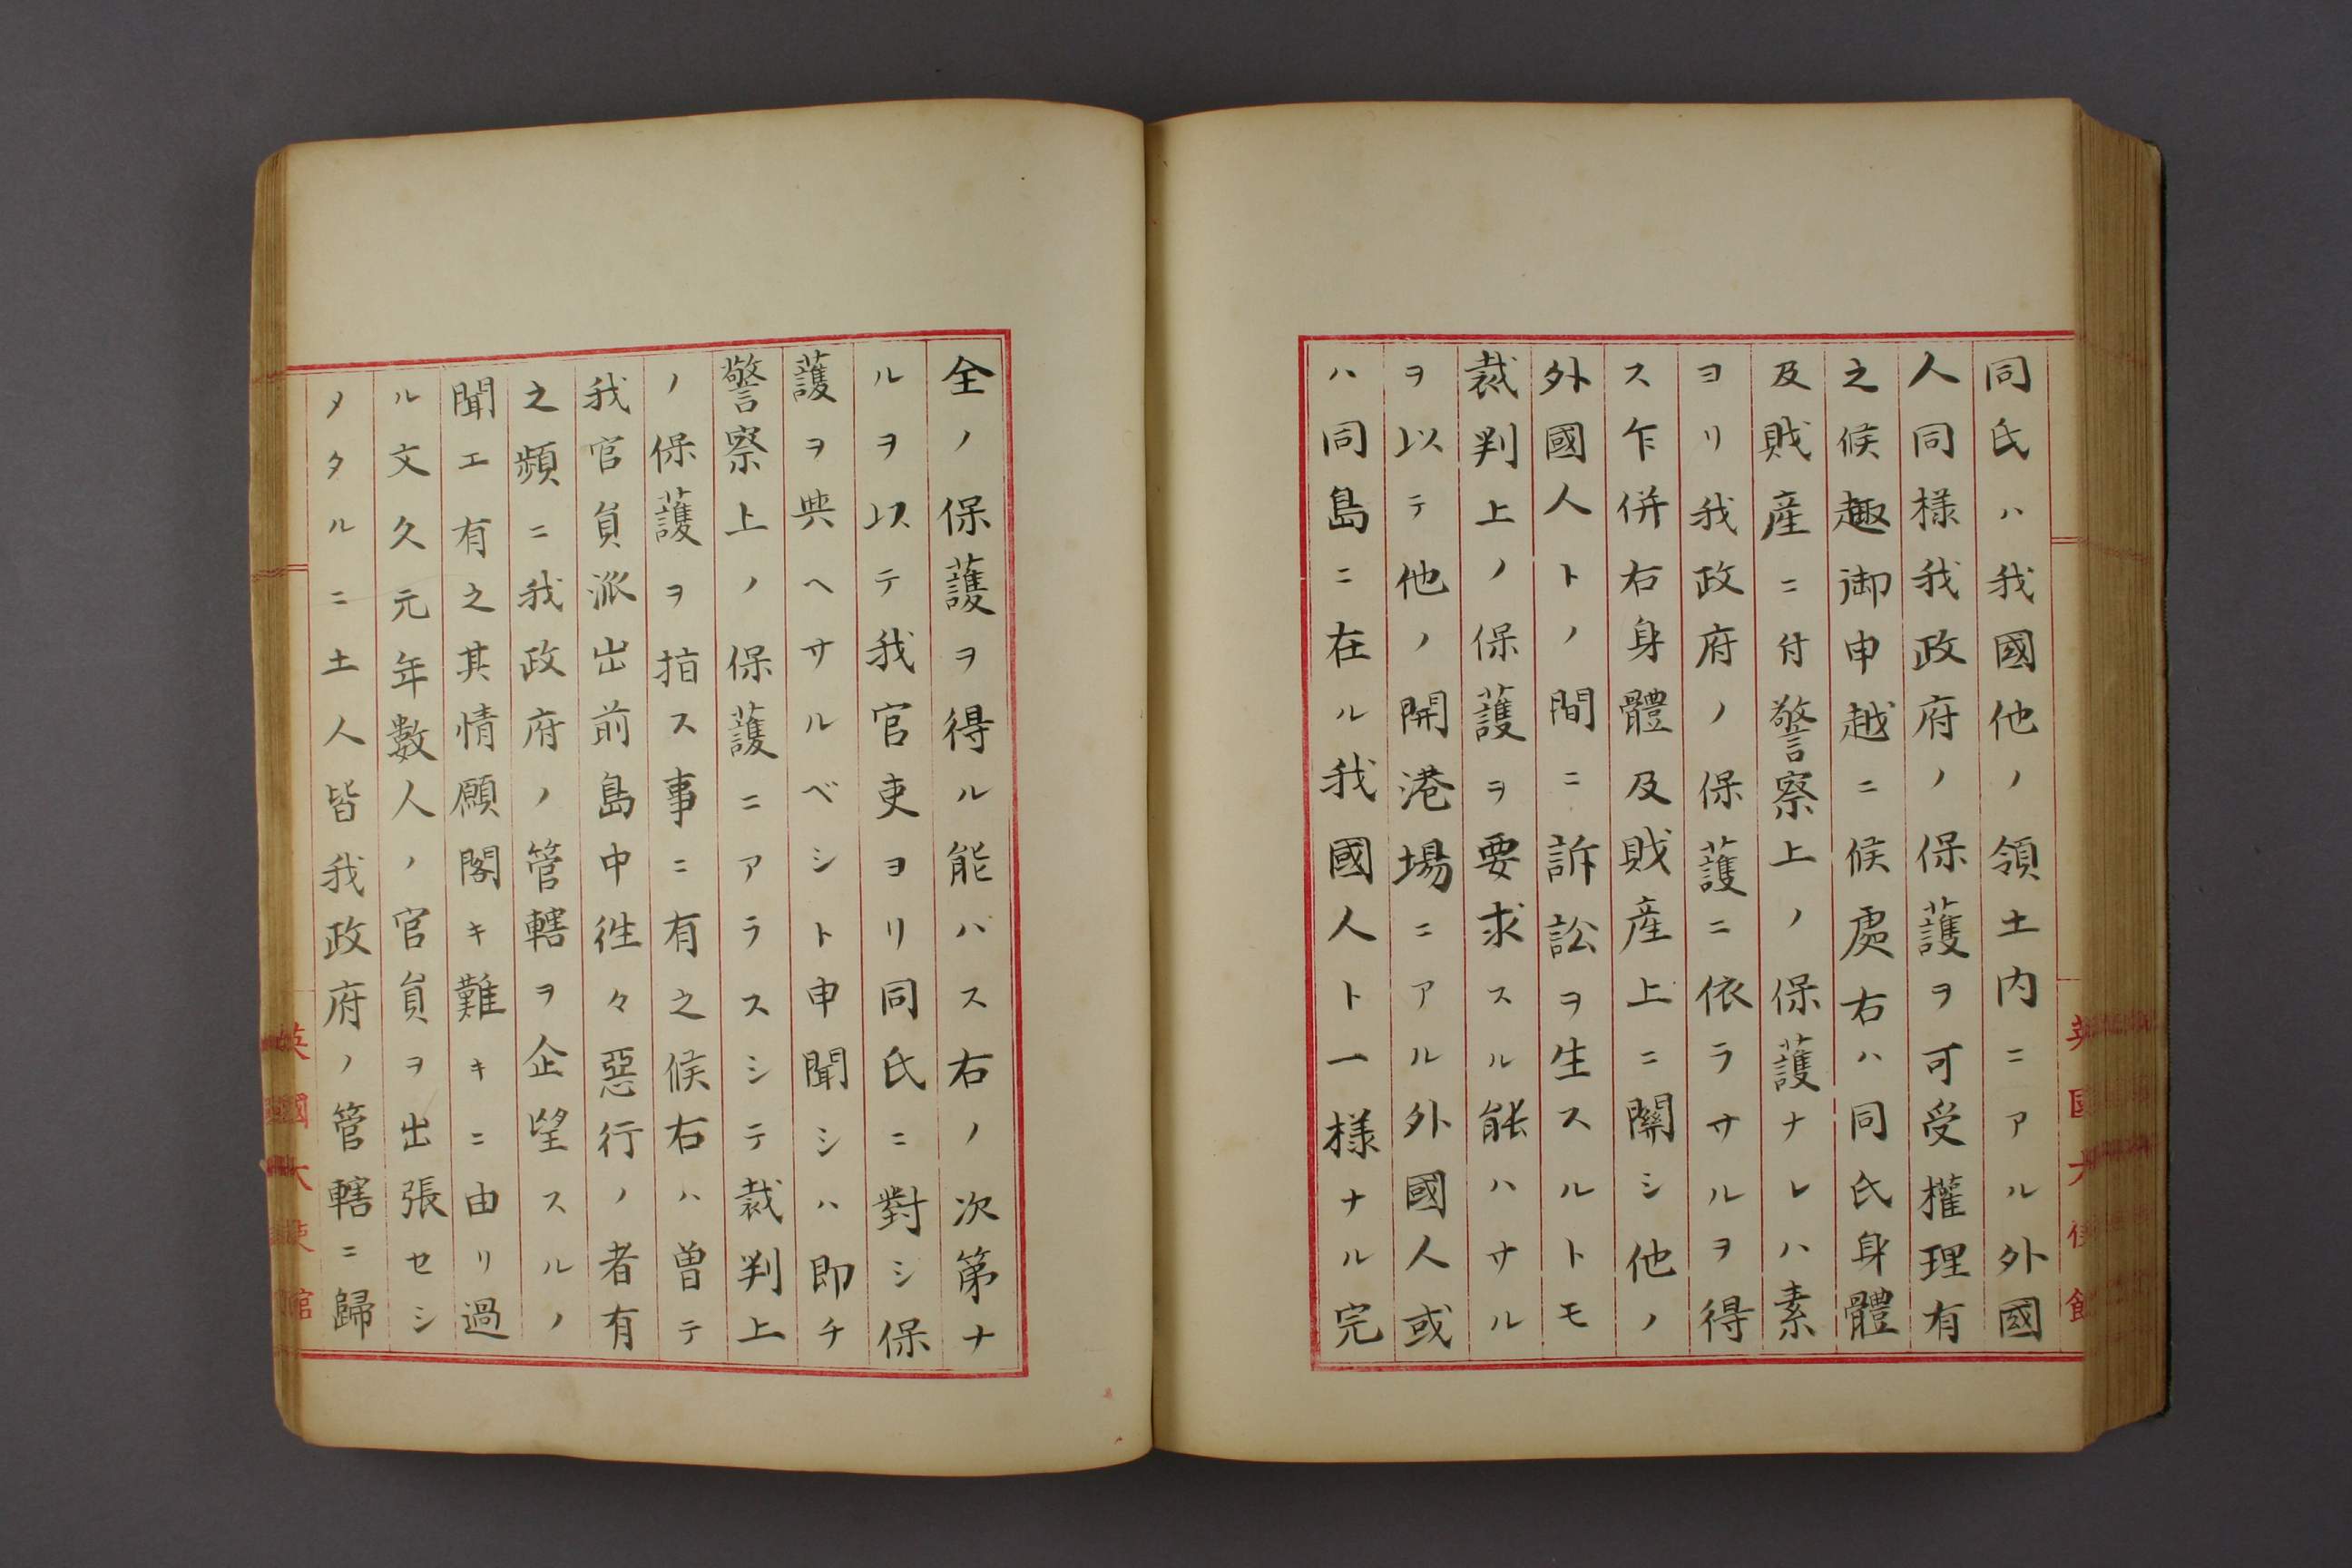 同氏ハ我國他ノ領土内ニアル外國
人同様我政府ノ保護ヲ可受權理有
之候趣御申越ニ候處右ハ同氏身體
及財産ニ付警察上ノ保護ナレハ素
ヨリ我政府ノ保護ニ依ラサルヲ得
ス乍併右身體及財産上ニ關シ他ノ
外國人トノ間ニ訴訟ヲ生スルトモ
裁判上ノ保護ヲ要求スル能ハサル
ヲ以テ他ノ開港場ニアル外國人或
ハ同島ニ在ル我國人ト一様ナル完
全ノ保護ヲ得ル能バス右ノ次第ナ
ルヲ以テ我官吏ヨリ同氏ニ對シ保
護ヲ與ヘサルベシト申聞シハ即チ
警察上ノ保護ニアラスシテ裁判上
ノ保護ヲ指ス事ニ有之候右ハ曽テ
我官員派出前島中徃々惡行ノ者有
之頻ニ我政府ノ管轄ヲ企望スルノ
聞エ有之其情願閣キ難キニ由リ過
ル文久元年數人ノ官員ヲ出張セシ
メタルニ土人皆我政府ノ管轄ニ歸
英國大使館